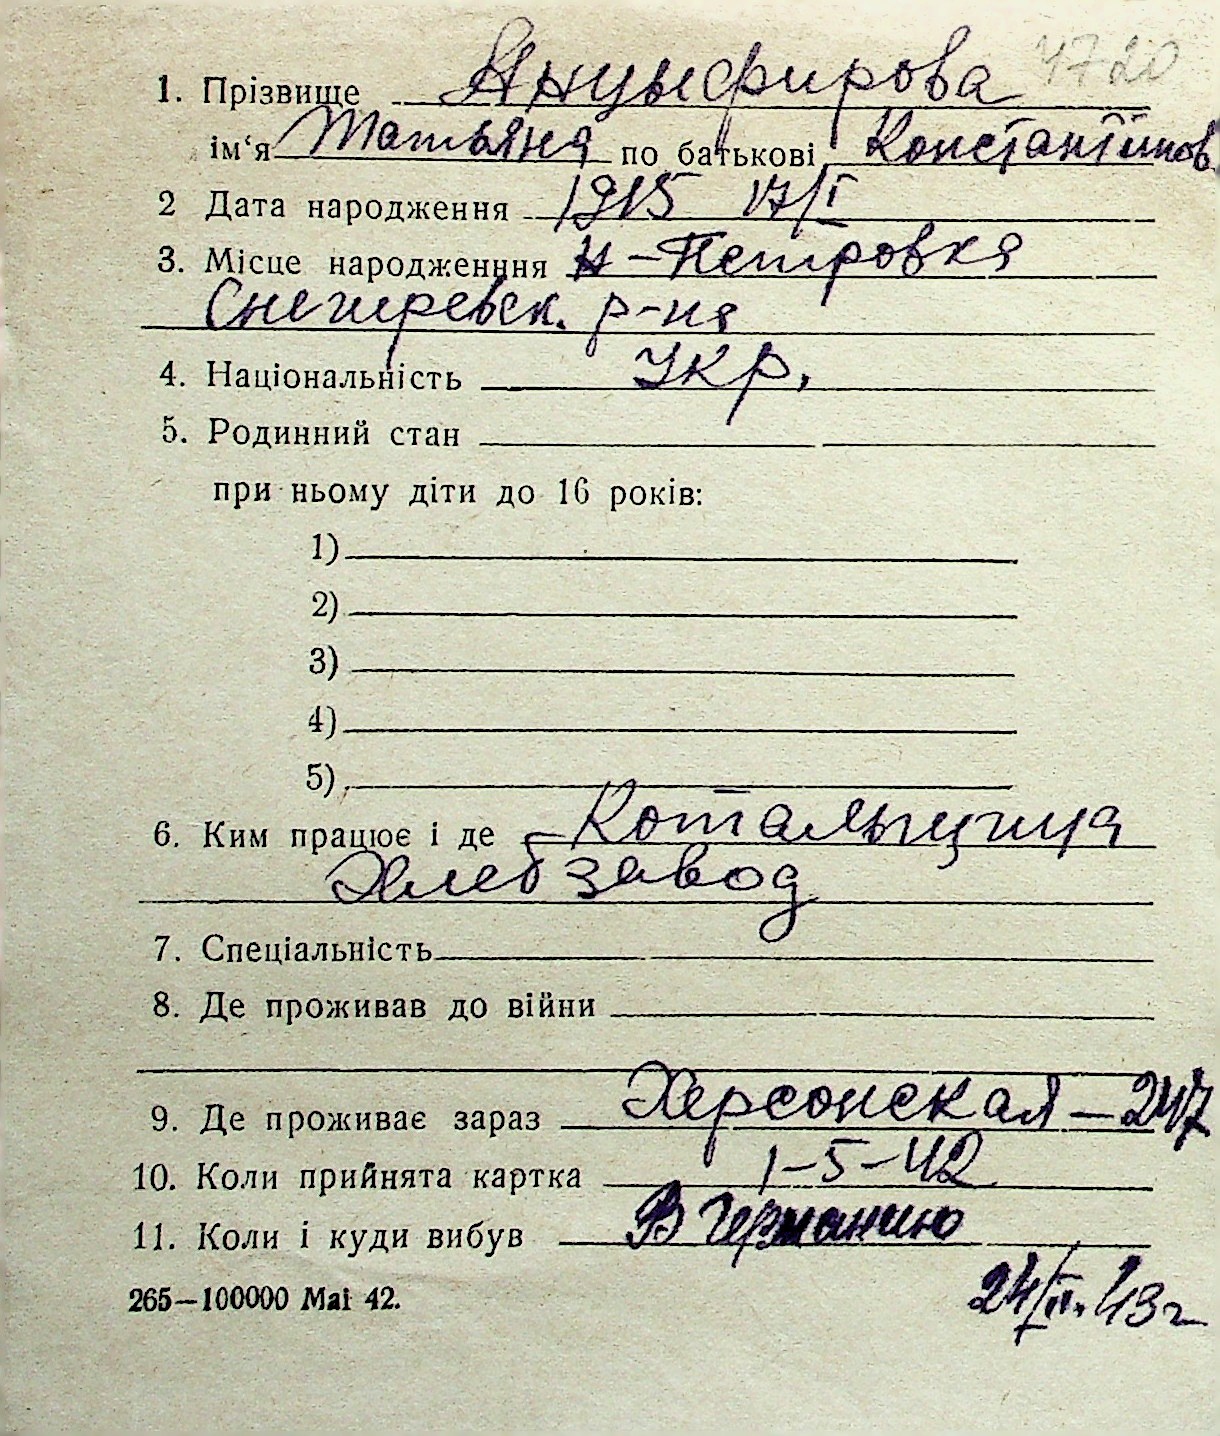 4720
1. Прізвище Анцыфирова
ім‘я Татьяна по батькові Константинов
2 Дата народження 1915 17/I
3. Місце народженння Н-Петровка
Снегиревск. р-на
4. Національність Укр.
5. Родинний стан
при ньому діти до 16 років:
1)
2)
3)
4)
5)
6. Ким працює і де Котальщица
Хлебзавод
7. Спеціальність
8. Де проживав до війни
9. Де проживає зараз Херсонская - 247
10. Коли прийнята картка 1-5-42
11. Коли і куди вибув В Германию
24/II.43г
265—100000 Mai 42.